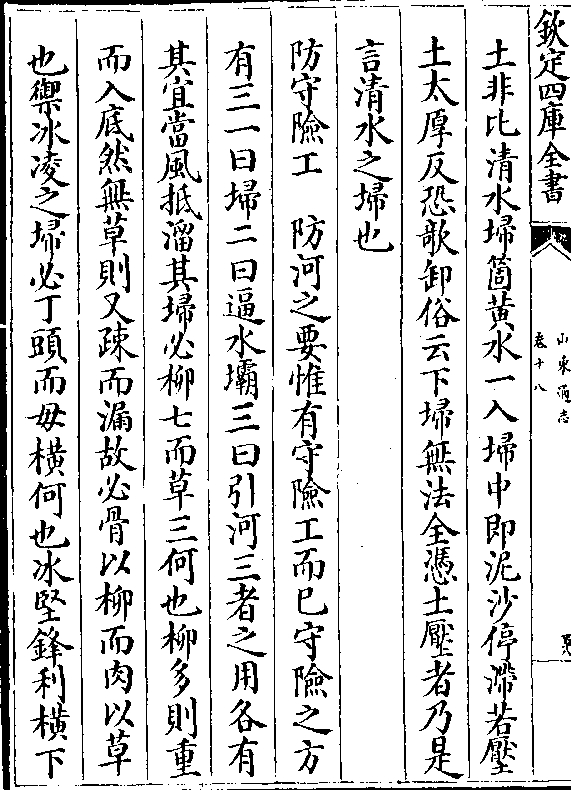 欽定四庫全書
山東通志
卷十八
土非比清水埽箇黄水一入埽中即泥沙停滯若壓
土太厚反恐歌卸俗云下埽無法全憑土壓者乃是
言清水之埽也
防守險工　防河之要惟有守險工而已守險之方
有三一曰埽二曰逼水壩三曰引河三者之用各有
其宜當風抵溜其埽必柳七而草三何也柳多則重
而入底然無草則又疎而漏故必骨以柳而肉以草
也禦冰凌之埽必丁頭而毋橫何也冰堅鋒利橫下